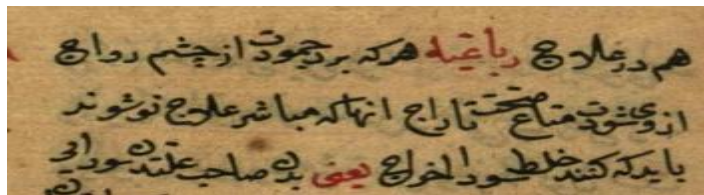 هم در علاج رباعیه هرکه برد جمودت از چشم رواج
از وی شود متاع صحت تاراج انها که مباشر علاج تو شوند
باید که کنند خلط سودا اخراج یعنی بدن صاحب